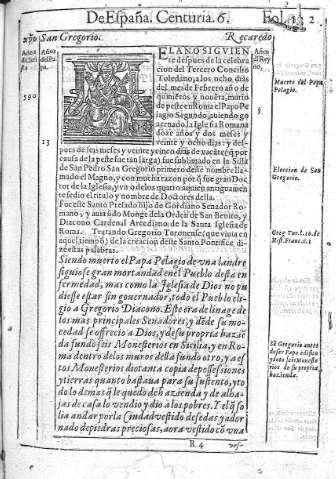 De España. Centuria. 6. Fol. 132
xp̃o San Gregorio. Recaredo
Años de Christo
Años de Papa.
Años del Reyno.
590
13
5
EL AÑO SIGVIEN
te despues de la celebra
cion del Tercero Concilio
Toledano, a los ocho dias
del mes de Febrero año de
quiniẽtos y nouẽta, murio
de peste en Roma el Papa Pe
lagio Segundo, auiendo go
uernado la Iglesia Romana
doze años y dos meses y
veinte y ocho dias: y des-
pues de seis meses y veinte y cinco dias de vacãte (q̃ por
causa de la peste fue tan larga) fue sublimado en la Silla
de San Pedro San Gregorio primero deste nombre lla-
mado el Magno, y con mucha razon por q̃ fue gran Doc
tor de la Iglesia, y vno de los quatro aquien antiguamẽ
te se dio el titulo y nombre de Doctores della.
Fue este Santo Prelado hijo de Gordiano Senador Ro-
mano, y auia sido Monge de la Ordẽ de San Benito, y
Diacono Cardenal Arcediano de la Santa Iglesia de
Roma. Tratando Gregorio Turonense (que viuia en
aquel tiempo) de la creacion deste Santo Pontifice, di-
ze estas palabras.
Siendo muerto el Papa Pelagio de vna landre
siguiose gran mortandad en el Pueblo desta en
fermedad, mas como la Iglesia de Dios no pu
diesse estar sin gouernador, todo el Pueblo eli-
gio a Gregorio Diacono. Este era del linage de
los mas principales Senadores, y dõde su mo
cedad se offrecio a Dios, y de su propria haziẽ
da fundo seis Monesterios en Sicilia, y en Ro-
ma dentro de los muros della fundo otro, y a es
tos Monesterios dio tanta copia de possessiones
y tierras quanto bastaua para su sustento, y to
do lo demas q̃ le quedo de hazienda y de alha-
jas de casa lo vendio y dio a los pobres. Y el q̃ so
lia andar por la Ciudad vestido de sedas y ador
nado de piedras preciosas, aora vestido cõ vna
R 4
ves-
Muerte del Papa
Pelagio.
Eleccion de San
Gregorio.
Greg. Tur. l. 10. de
Hist. Franc. c. 1
S. Gregorio antes
de ser Papa edifico
y doto seis moneste
rios de su propria
hazienda.